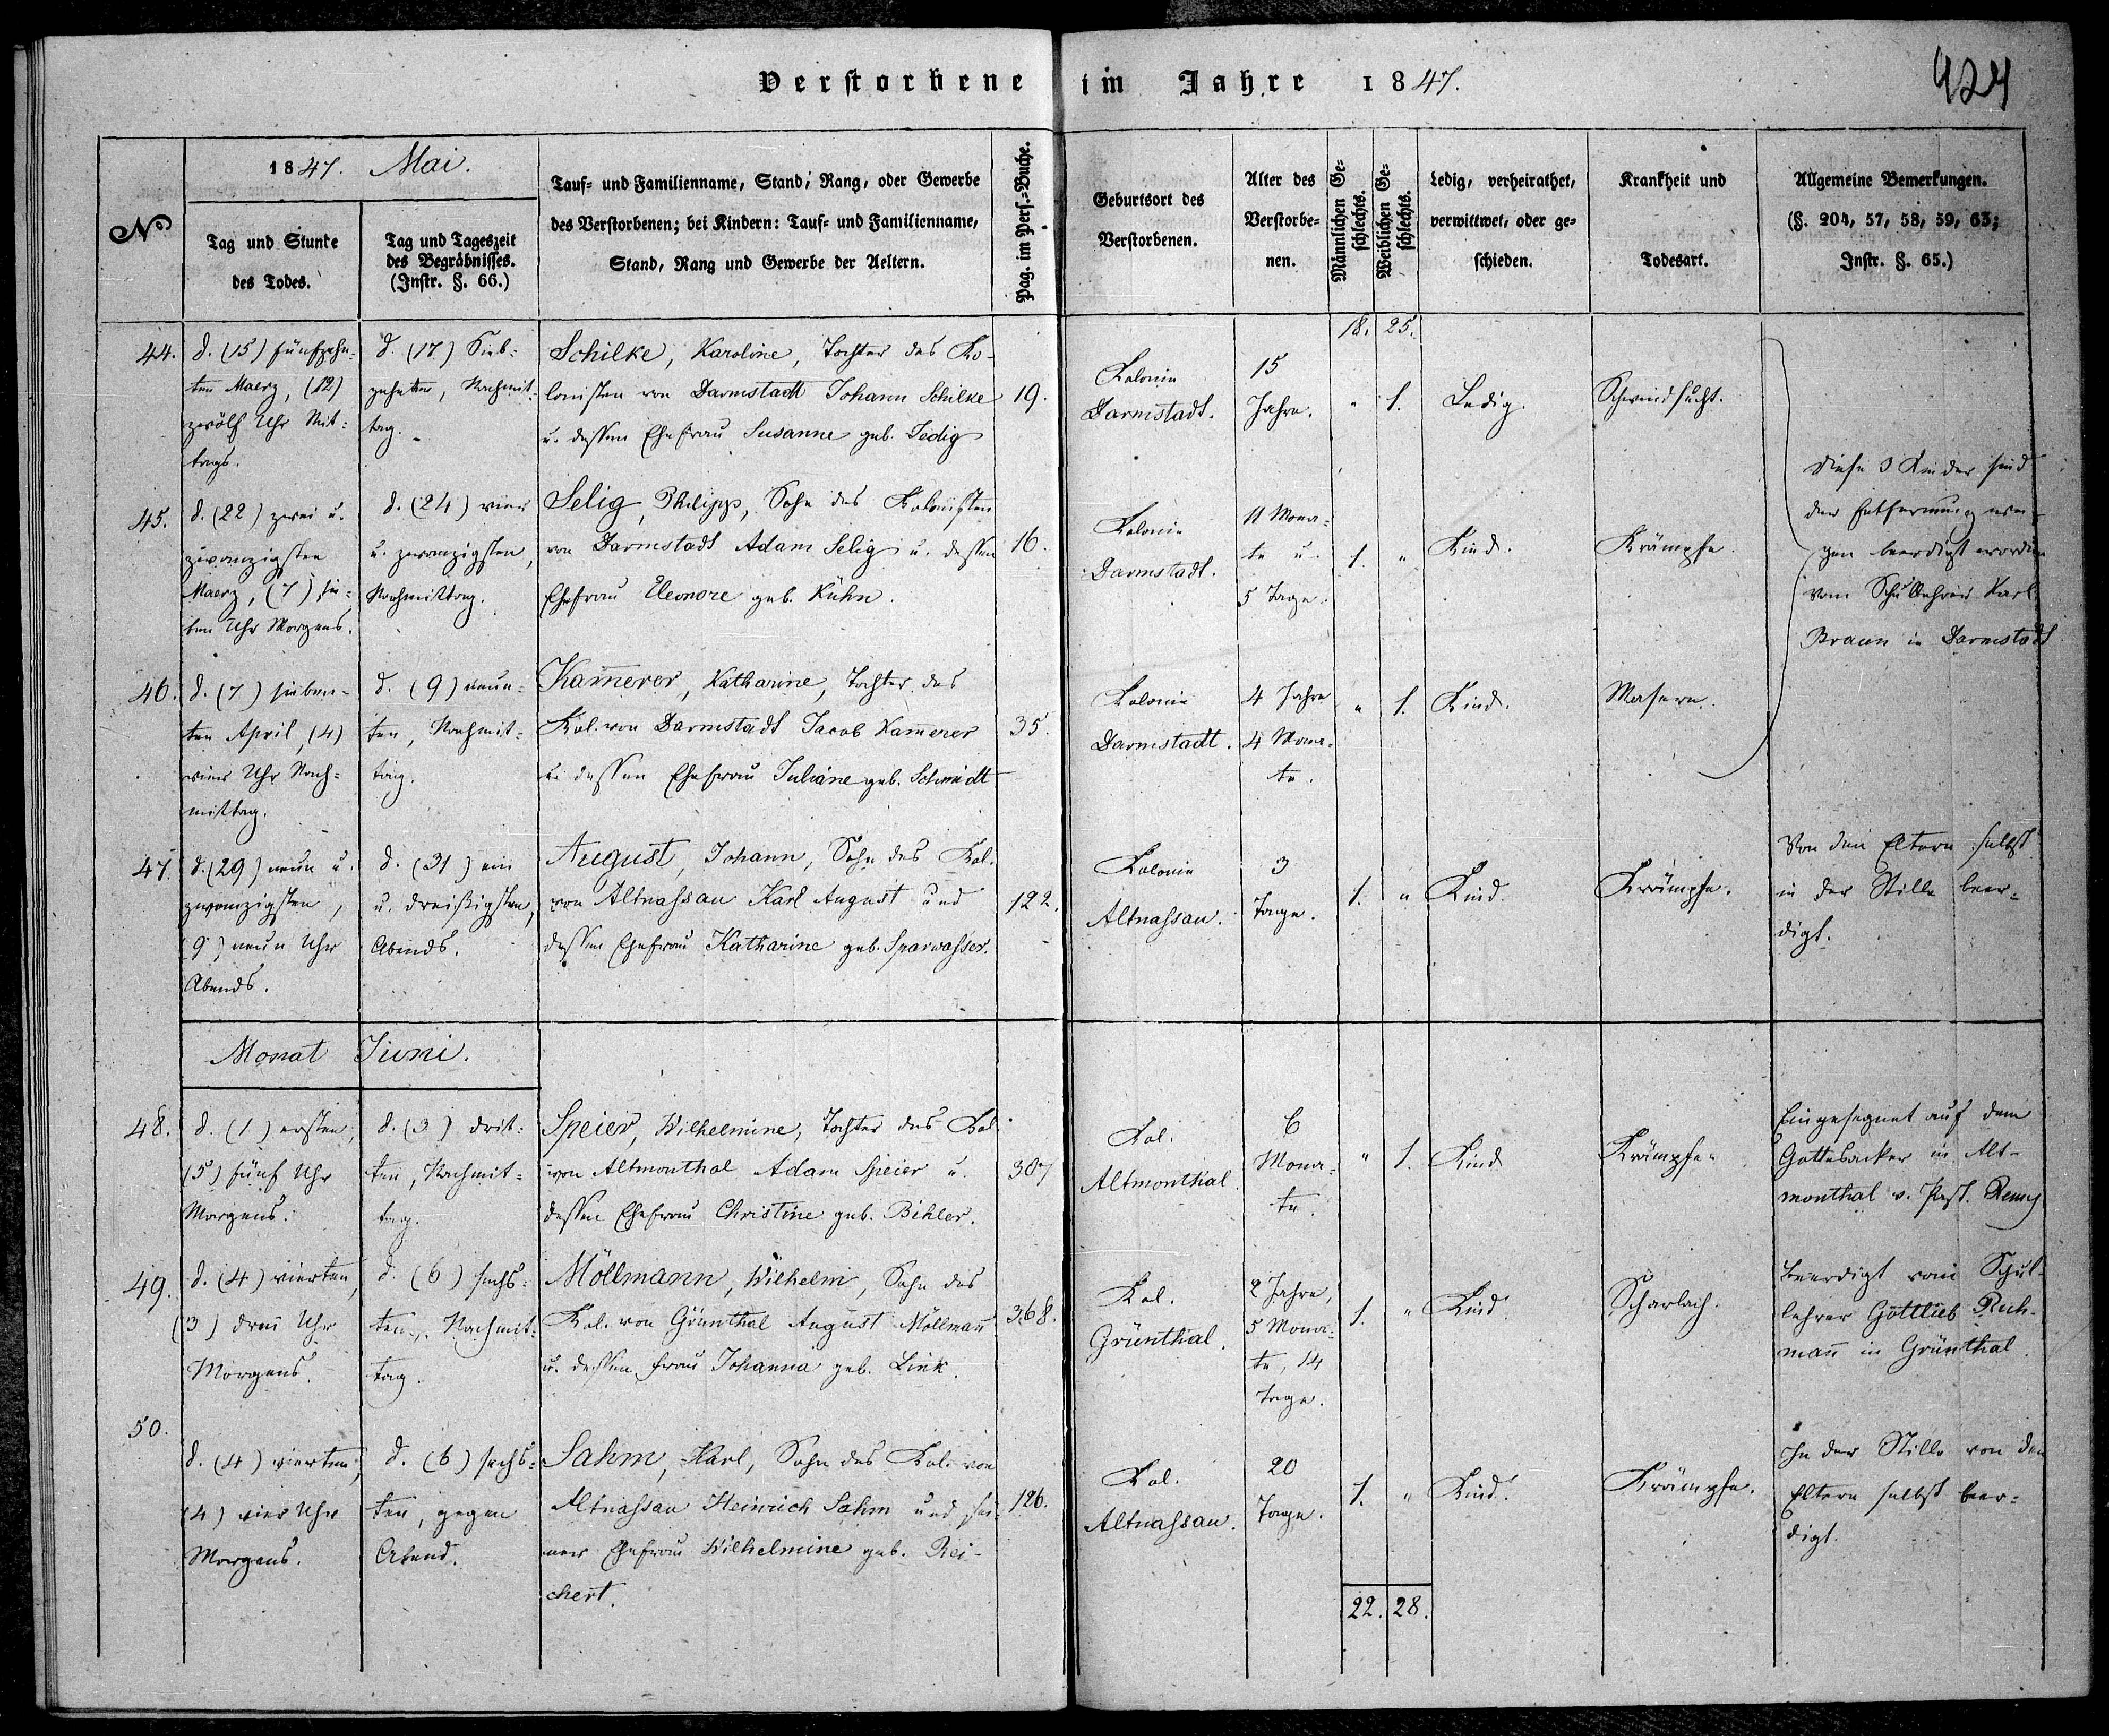 Verstorbene im Jahre 1847.
424
No
1847. Mai.
Tag und Stunde
des Todes.
Tag und Tageszeit
des Begräbnisses.
(Instr. §. 66.)
Tauf- und Familienname, Stand, Rang, oder Gewerbe
des Verstorbenen; bei Kindern: Tauf- und Familienname,
Stand, Rang und Gewerbe der Aeltern.
Pag. im Pers.-Buche.
Geburtsort des
Verstorbenen.
Alter des
Verstorbe-
nen.
Männlichen Ge-
schlechts.
Weiblichen Ge-
schlechts.
Ledig, verheirathet,
verwittwet, oder ge-
schieden.
Krankheit und
Todesart.
Allgemeine Bemerkungen.
(§. 204, 57, 58, 59, 63;
Instr. §. 65.)
18. 25.
44.
d. (15) fünfzehn-
ten Maerz, (12)
zwölf Uhr Mit-
tags.
d. (17) Sieb-
zehnten, Nachmit-
tag.
Schilke, Karoline, Tochter des Ko-
lonisten von Darmstadt Johann Schilke
u. dessen Ehefrau Susanne geb. Jedig
19.
Kolonie
Darmstadt.
15
Jahre.
" 1.
Ledig.
Schwindsucht.
Diese 3 Kinder sind
der Entfernung we-
gen beerdigt worden
vom Schullehrer Karl
Braun in Darmstadt
45.
d. (22) zwei u.
zwanzigsten
Maerz, (7) sie-
ben Uhr Morgens.
d. (24) vier
u. zwanzigsten,
Nachmittag.
Selig, Philipp, Sohn des Kolonisten
von Darmstadt Adam Selig u. dessen
Ehefrau Eleonore geb. Kühn.
16.
Kolonie
Darmstadt.
11 Mona-
te u.
5 Tage.
1. "
Kind.
Krämpfe.
46.
d. (7) sieben-
ten April, (4)
vier Uhr Nach-
mittag.
d. (9) neun-
ten, Nachmit-
tag.
Kam̄erer, Katharine, Tochter des
Kol. von Darmstadt Jacob Kam̄erer
u. dessen Ehefrau Juliane geb. Schmidt
35.
Kolonie
Darmstadt.
4 Jahre
4 Mona-
te.
" 1.
Kind.
Masern.
47.
d. (29) neun u.
zwanzigsten,
(9) neun Uhr
Abends.
d. (31) ein
u. dreißigsten,
Abends.
August, Johann, Sohn des Kol.
von Altnassau Karl August und
dessen Ehefrau Katharine geb. Sparwasser.
122.
Kolonie
Altnassau.
3
Tage.
1. "
Kind.
Krämpfe.
Von den Eltern selbst
in der Stille beer-
digt.
Monat Juni.
48.
d. (1) ersten,
(5) fünf Uhr
Morgens.
d. (3) drit-
ten, Nachmit-
tag.
Speier, Wilhelmine, Tochter des Kol.
von Altmonthal Adam Speier u.
dessen Ehefrau Christine geb. Bihler.
307
Kol.
Altmonthal.
6
Mona-
te.
" 1.
Kind
Krämpfe.
Eingesegnet auf dem
Gottesacker in Alt-
monthal v. Past. Remy
49.
d. (4) vierten,
(3) drei Uhr
Morgens.
d. (6) sechs-
ten, Nachmit-
tag.
Möllmann, Wilhelm, Sohn des
Kol. von Grünthal August Möllmañ
u. dessen Frau Johanna geb. Link.
368.
Kol.
Grünthal.
2 Jahre,
5 Mona-
te, 14
Tage.
1. "
Kind.
Scharlach.
Beerdigt vom Schul-
lehrer Gottlieb Ruh-
mañ in Grünthal.
50.
d. (4) vierten,
(4) vier Uhr
Morgens.
d. (6) sechs-
ten, gegen
Abend.
Sahm, Karl, Sohn des Kol. von
Altnassau Heinrich Sahm und sei-
ner Ehefrau Wilhelmine geb. Rei-
chert.
126.
Kol.
Altnassau.
20
Tage.
1. "
Kind.
Krämpfe.
In der Stille von den
Eltern selbst beer-
digt.
22. 28.